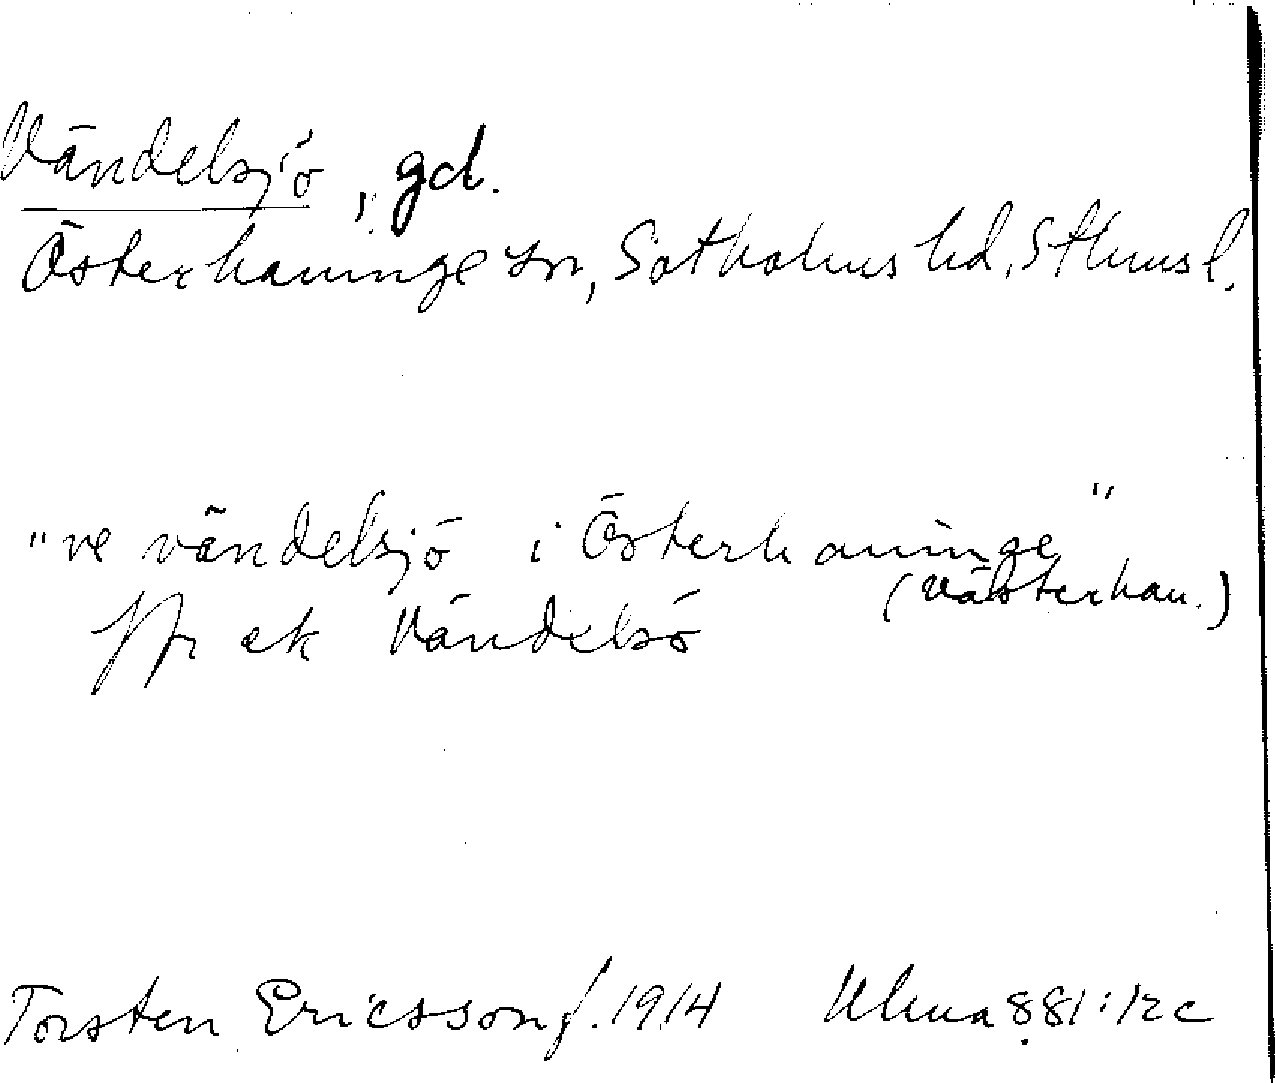 Vändelsjö, gd.
Österhaninge sn, Sotholms hd, Sthms l.
"ve vändelsjö i Österhaninge"
(Västerhan.)
Jfr ek Vändelsö
Torsten Ericsson f. 1914 Ulma 881:12 c